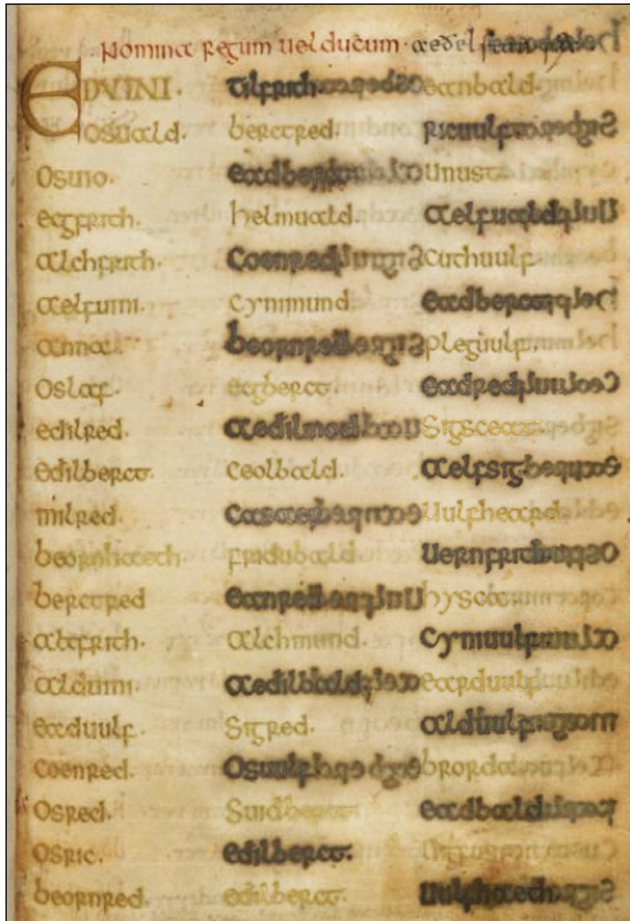 Nomina regum uel ducum · aeðel
EDVINI·
Osuald.
Osuio.
ecgfrith.
alchfrith.
aelfuini.
anna.
Oslaf.
edilred.
edilberct.
milred.
beornhaeth.
berctred
altfrith.
alduini.
eaduulf.
Coenred.
Osred.
Osric.
beornred.
Tilfrith
berctred.
eadberct
helmuald.
Coenred
Cynimund.
beornred
ecgberct.
aedilmod
Ceolbald.
fridubald
eanred
alchmund.
aedilbald
Sigred.
Osuulf
Suidberct
edilberct.
edilberct.
eanbald.
Ricuulf
Unust
aelfuald
Cuthuulf
eadberct
pleguulf.
eadred
aelfsig
Uulfheard.
Uernfrith
Cynuulf
earduulf
alduulf
brorda
eadbald
Uulfhaeth